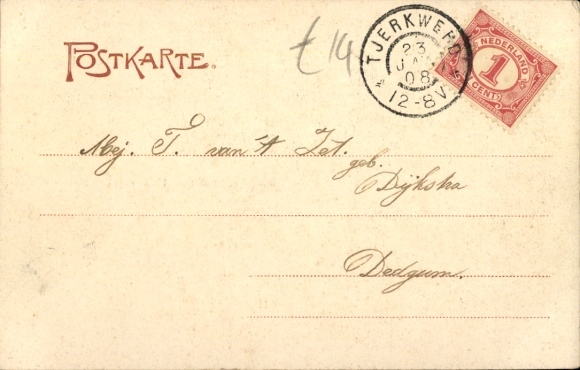 POSTKARTE.
£ 14
TJERKWERD
23
JAN
08
12-8V
NEDERLAND
1
CENT
Mej. T. van 't Zet.
geb.
Dijkstra
Dedgum.